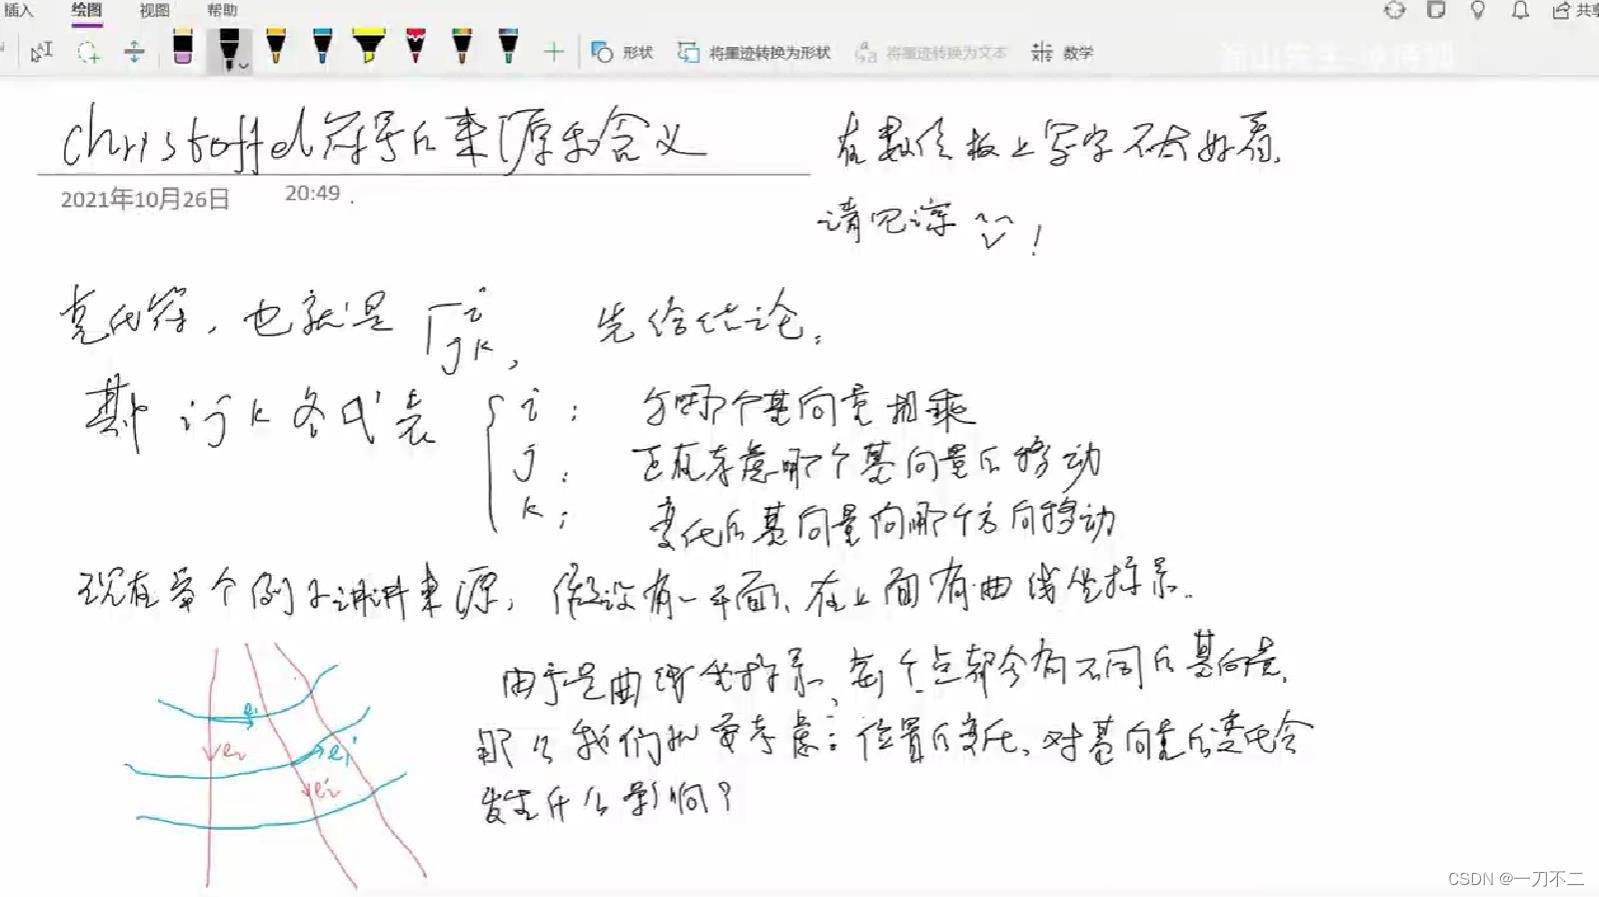 插入 绘图 视图 帮助 共享
形状 将墨迹转换为形状 将墨迹转换为文本 数学
Christoffel符号的来源和含义
2021年10月26日 20:49
在数位板上写字不太好看,
请见谅 !
克氏符, 也就是 Γ^i_{jk}, 先给结论:
其中 ijk 各代表
i: 与哪个基向量相乘
j: 正在考虑哪个基向量的移动
k: 变化的基向量向哪个方向移动
现在举个例子讲讲来源, 假设有一平面, 在上面有曲线坐标系.
由于是曲线坐标系, 每个点都会有不同的基向量,
那么我们就要考虑: 位置的变化, 对基向量的变化会
发生什么影响?
e₁
e₂
e₁'
e₂'
CSDN @一刀不二